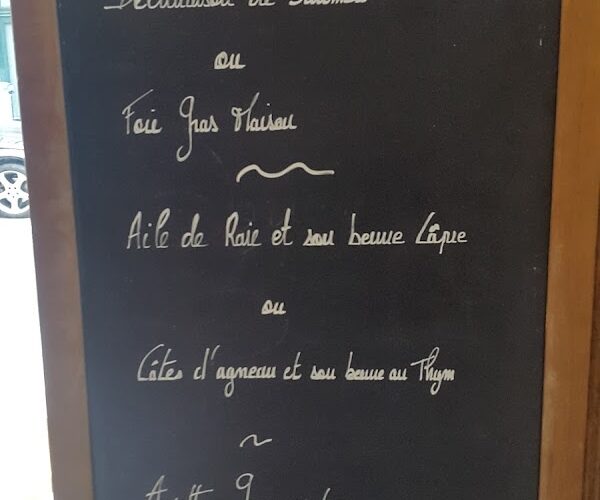 Déclinaison de Saumon
ou
Foie Gras Maison
Aile de Raie et son beurre Câpre
ou
Côtes d'agneau et son beurre au Thym